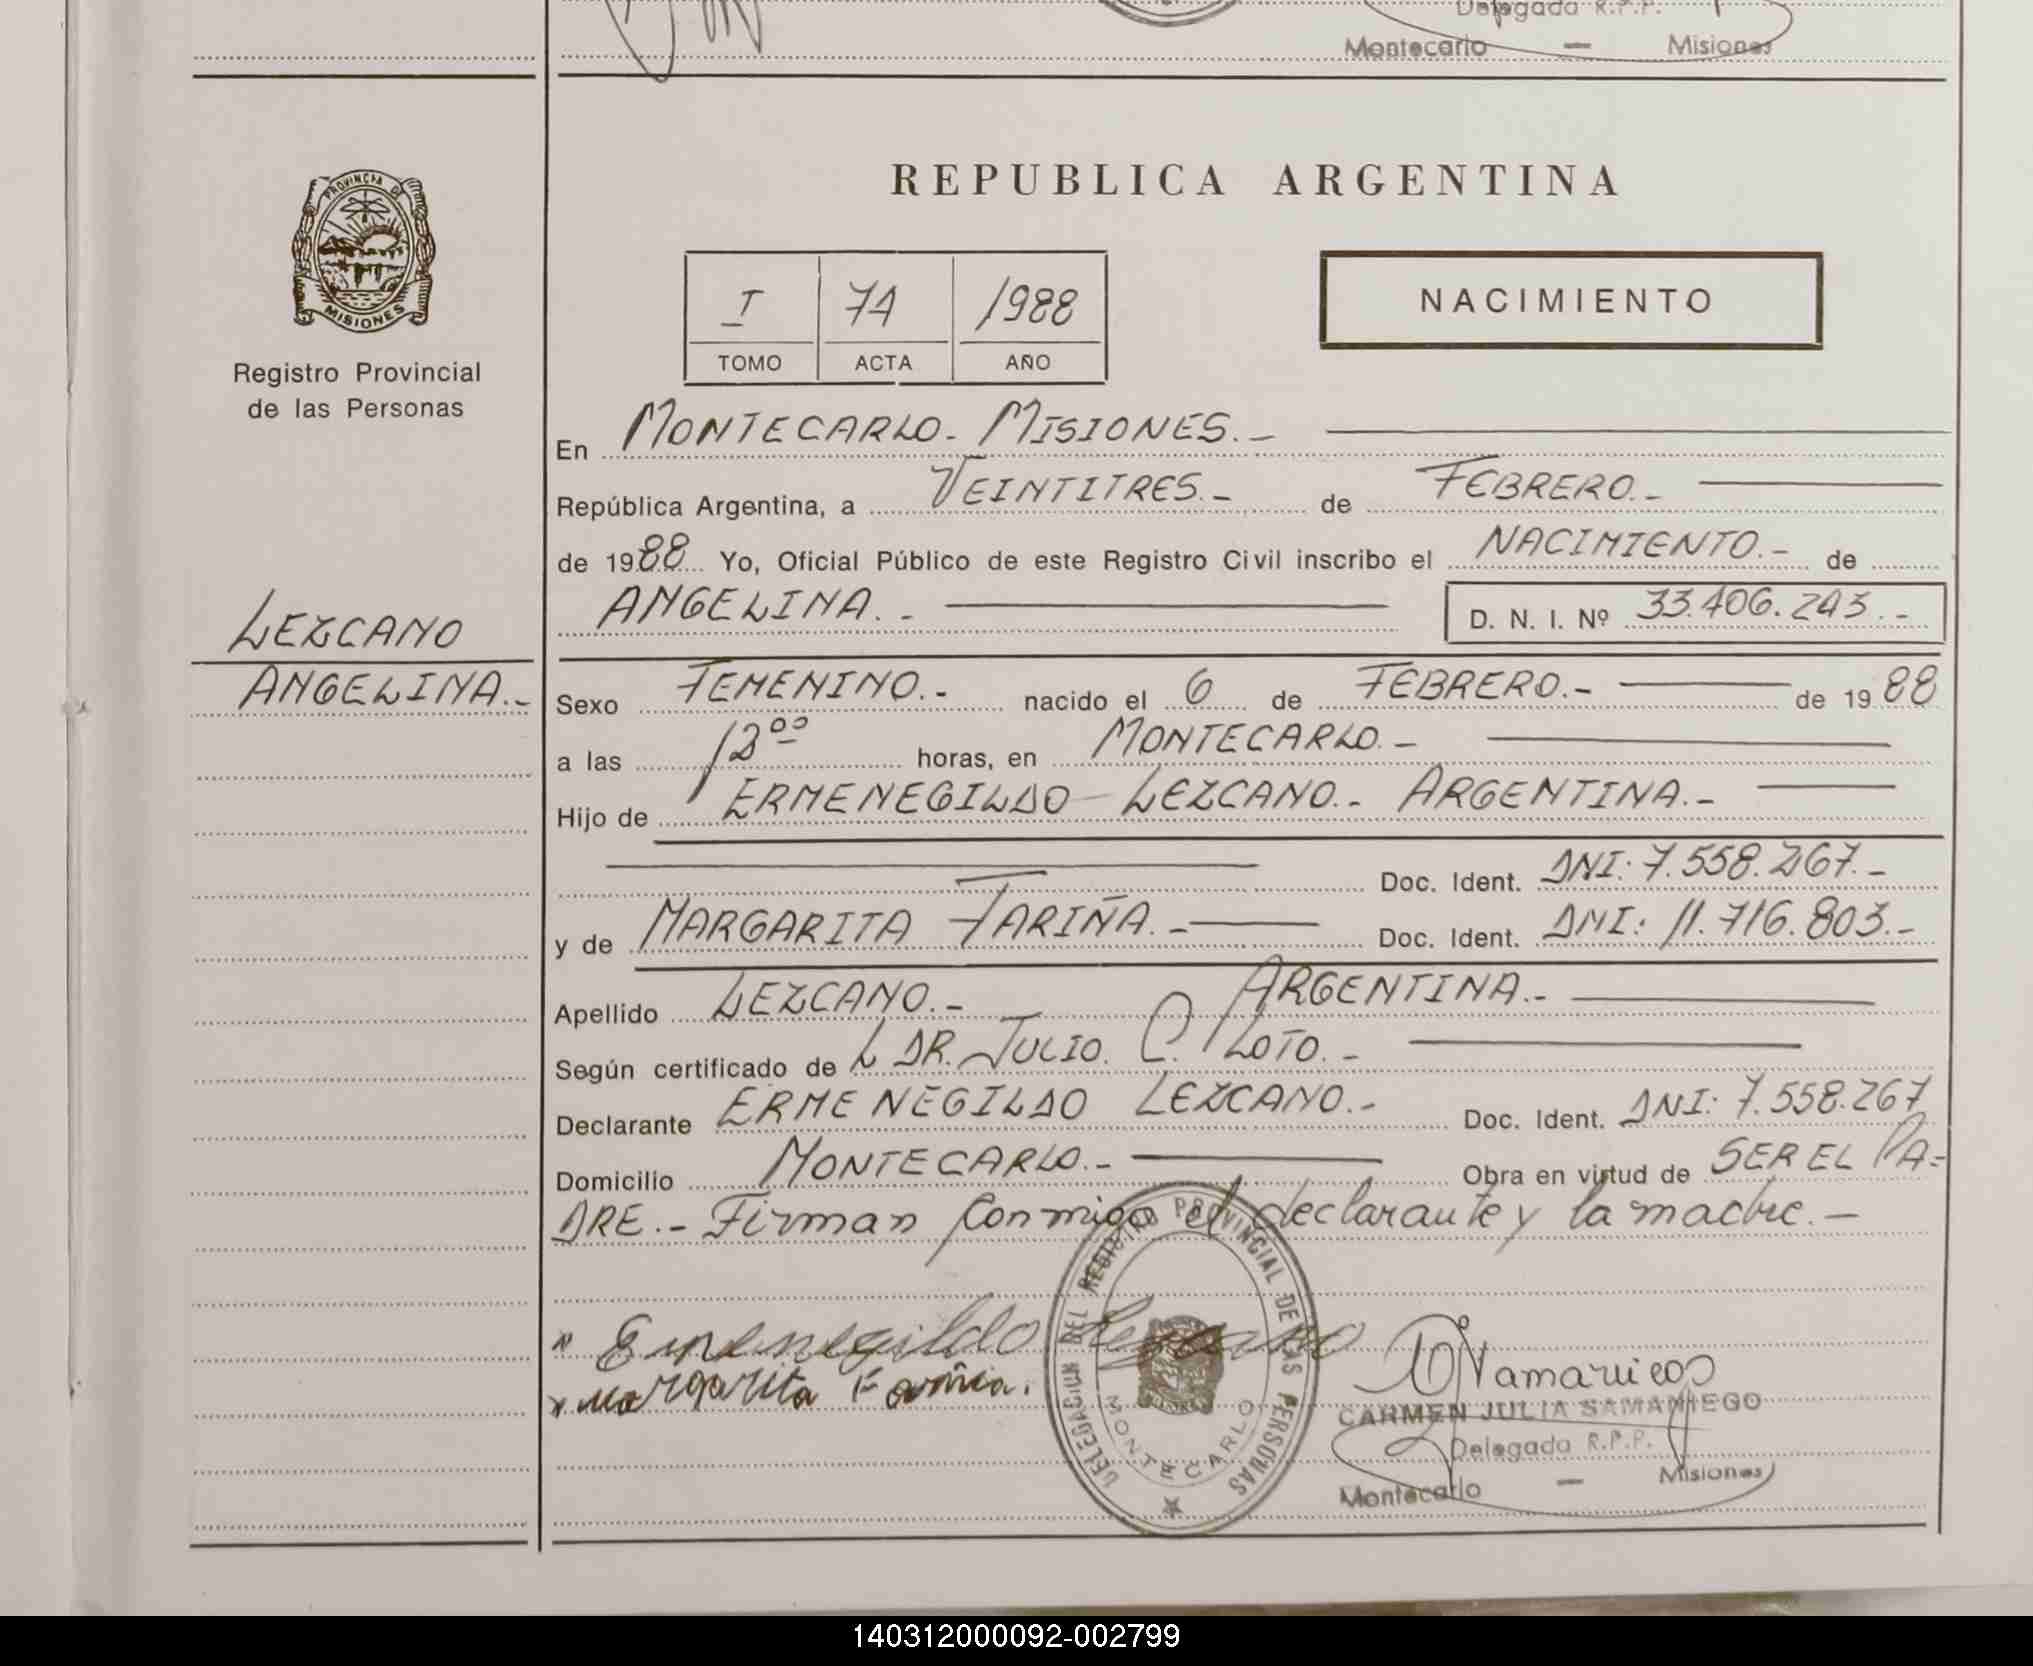 Delegada R.P.P.
Montecarlo — Misiones
PROVINCIA DE
MISIONES
Registro Provincial
de las Personas
LEZCANO
ANGELINA.-
REPUBLICA ARGENTINA
I 74 1988
TOMO ACTA AÑO
NACIMIENTO
En MONTECARLO - MISIONES.-
República Argentina, a VEINTITRES.- de FEBRERO.-
de 1988 Yo, Oficial Público de este Registro Civil inscribo el NACIMIENTO.- de
ANGELINA.- D. N. I. Nº 33.406.243.-
Sexo FEMENINO.- nacido el 6 de FEBRERO.- de 1988
a las 13⁰⁰ horas, en MONTECARLO.-
Hijo de ERMENEGILDO LEZCANO.- ARGENTINA.-
Doc. Ident. DNI: 7.558.267.-
y de MARGARITA FARIÑA.- Doc. Ident. DNI: 11.716.803.-
Apellido LEZCANO.- ARGENTINA.-
Según certificado de L DR. JULIO. C. LOTO.-
Declarante ERMENEGILDO LEZCANO.- Doc. Ident. DNI: 7.558.267
Domicilio MONTECARLO.- Obra en virtud de SER EL PA-
DRE.- Firman conmigo el declarante y la madre.-
Ermenegildo Lezcano
x Margarita Fariña.
DELEGACION DEL REGISTRO PROVINCIAL DE LAS PERSONAS
MONTECARLO
CARMEN JULIA SAMANIEGO
Delegada R.P.P.
Montecarlo — Misiones
140312000092-002799